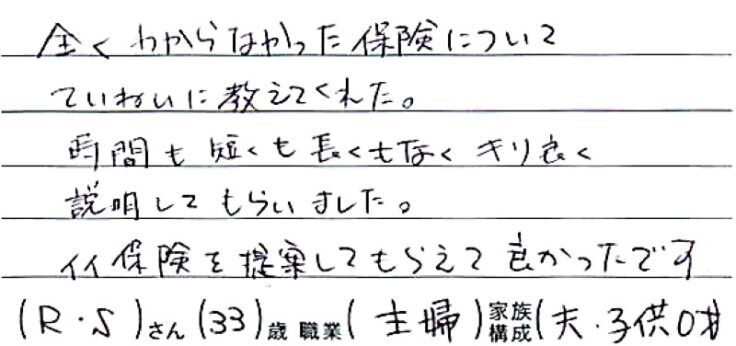 全くわからなかった保険について
ていねいに教えてくれた。
時間も短くも長くもなくキリ良く
説明してもらいました。
イイ保険を提案してもらえて良かったです
(R・S)さん(33)歳 職業(主婦)家族構成(夫・子供0才